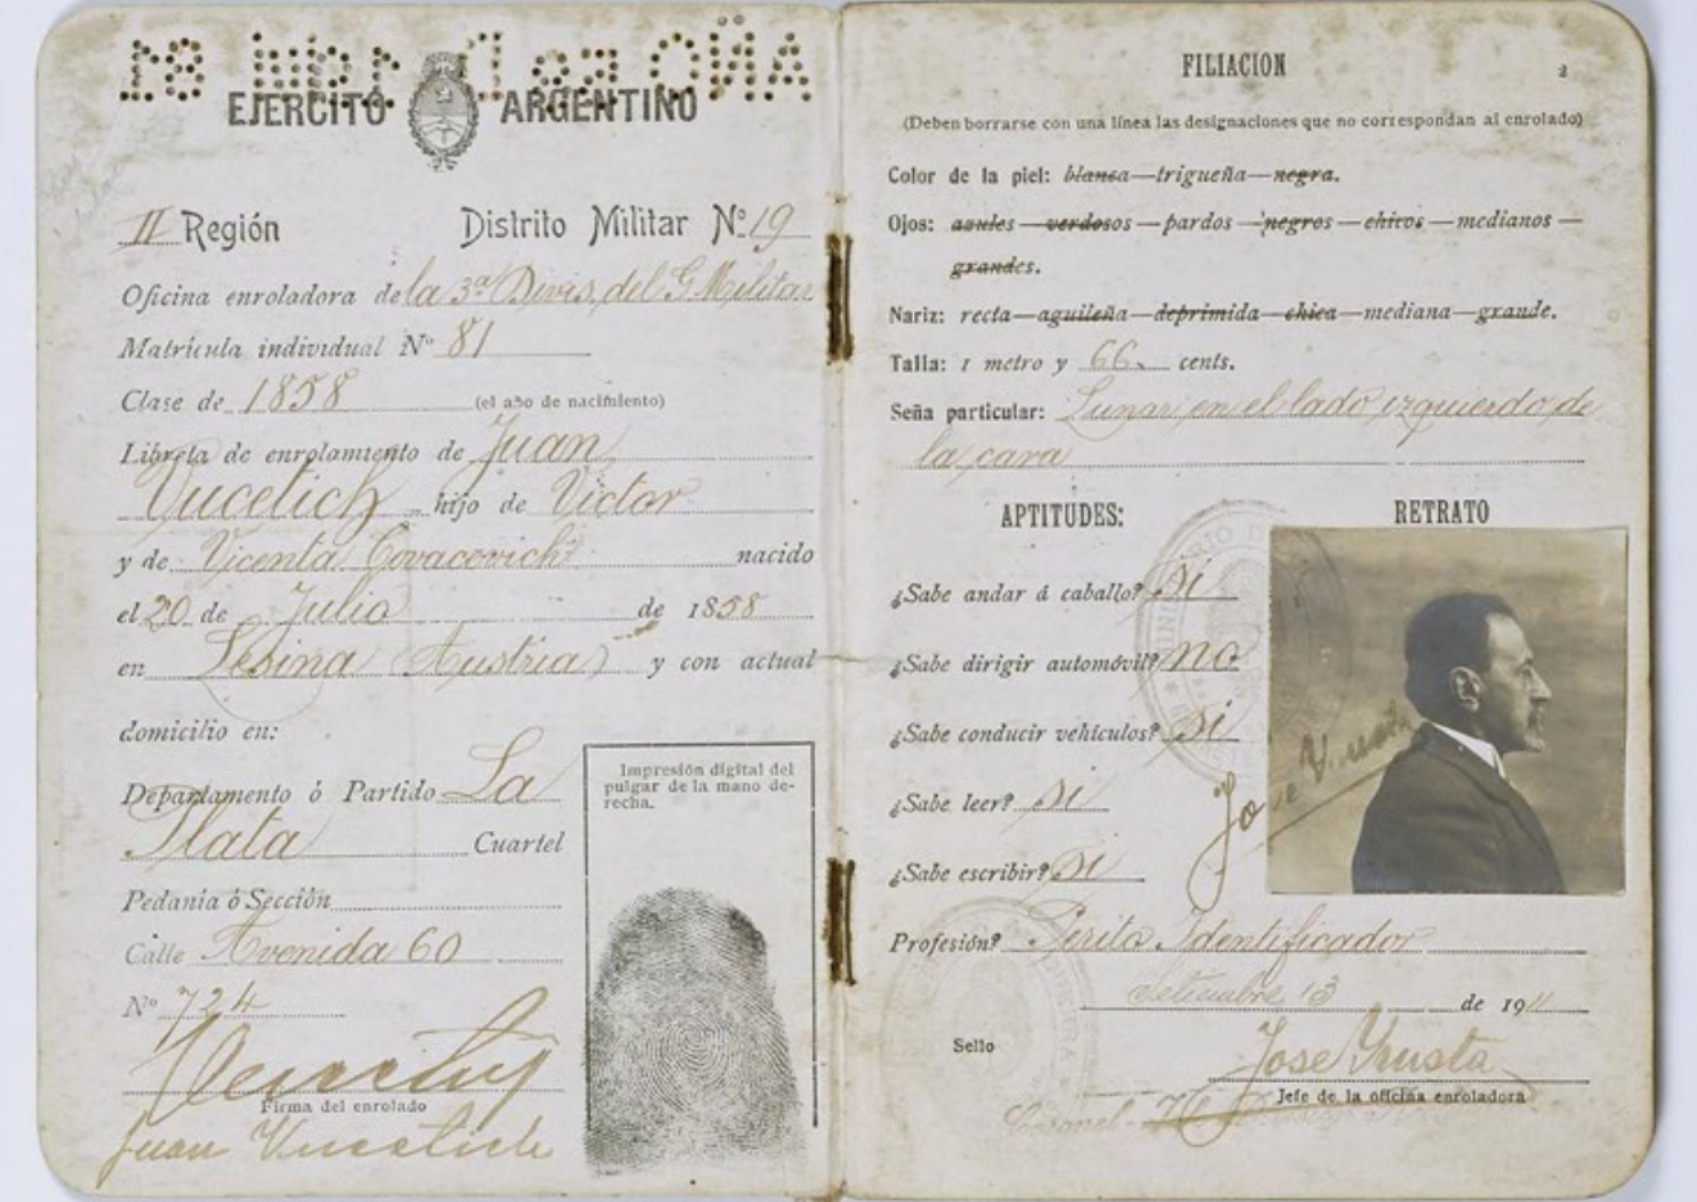 EJERCITO ARGENTINO
II Región Distrito Militar Nº 19
Oficina enroladora de la 3ª Divis. del G. Militar
Matrícula individual Nº 81
Clase de 1858 (el año de nacimiento)
Libreta de enrolamiento de Juan
Vucetich hijo de Victor
y de Vicenta Covacovich nacido
el 20 de Julio de 1858
en Lesina (Austria) y con actual
domicilio en:
Departamento ó Partido La
Plata Cuartel
Pedanía ó Sección
Calle Avenida 60
Nº 724
Firma del enrolado
Juan Vucetich
Impresión digital del
pulgar de la mano de-
recha.
FILIACION 2
(Deben borrarse con una línea las designaciones que no correspondan al enrolado)
Color de la piel: blanca—trigueña—negra.
Ojos: azules—verdosos—pardos—negros—chicos—medianos—
grandes.
Nariz: recta—aguileña—deprimida—chica—mediana—grande.
Talla: 1 metro y 66 cents.
Seña particular: Lunar en el lado izquierdo de
la cara
APTITUDES: RETRATO
¿Sabe andar á caballo? si
¿Sabe dirigir automóvil? no
¿Sabe conducir vehículos? si
¿Sabe leer? si
¿Sabe escribir? si
Profesión? Perito Identificador
Setiembre 13 de 1911
Sello
Jose
Jefe de la oficina enroladora